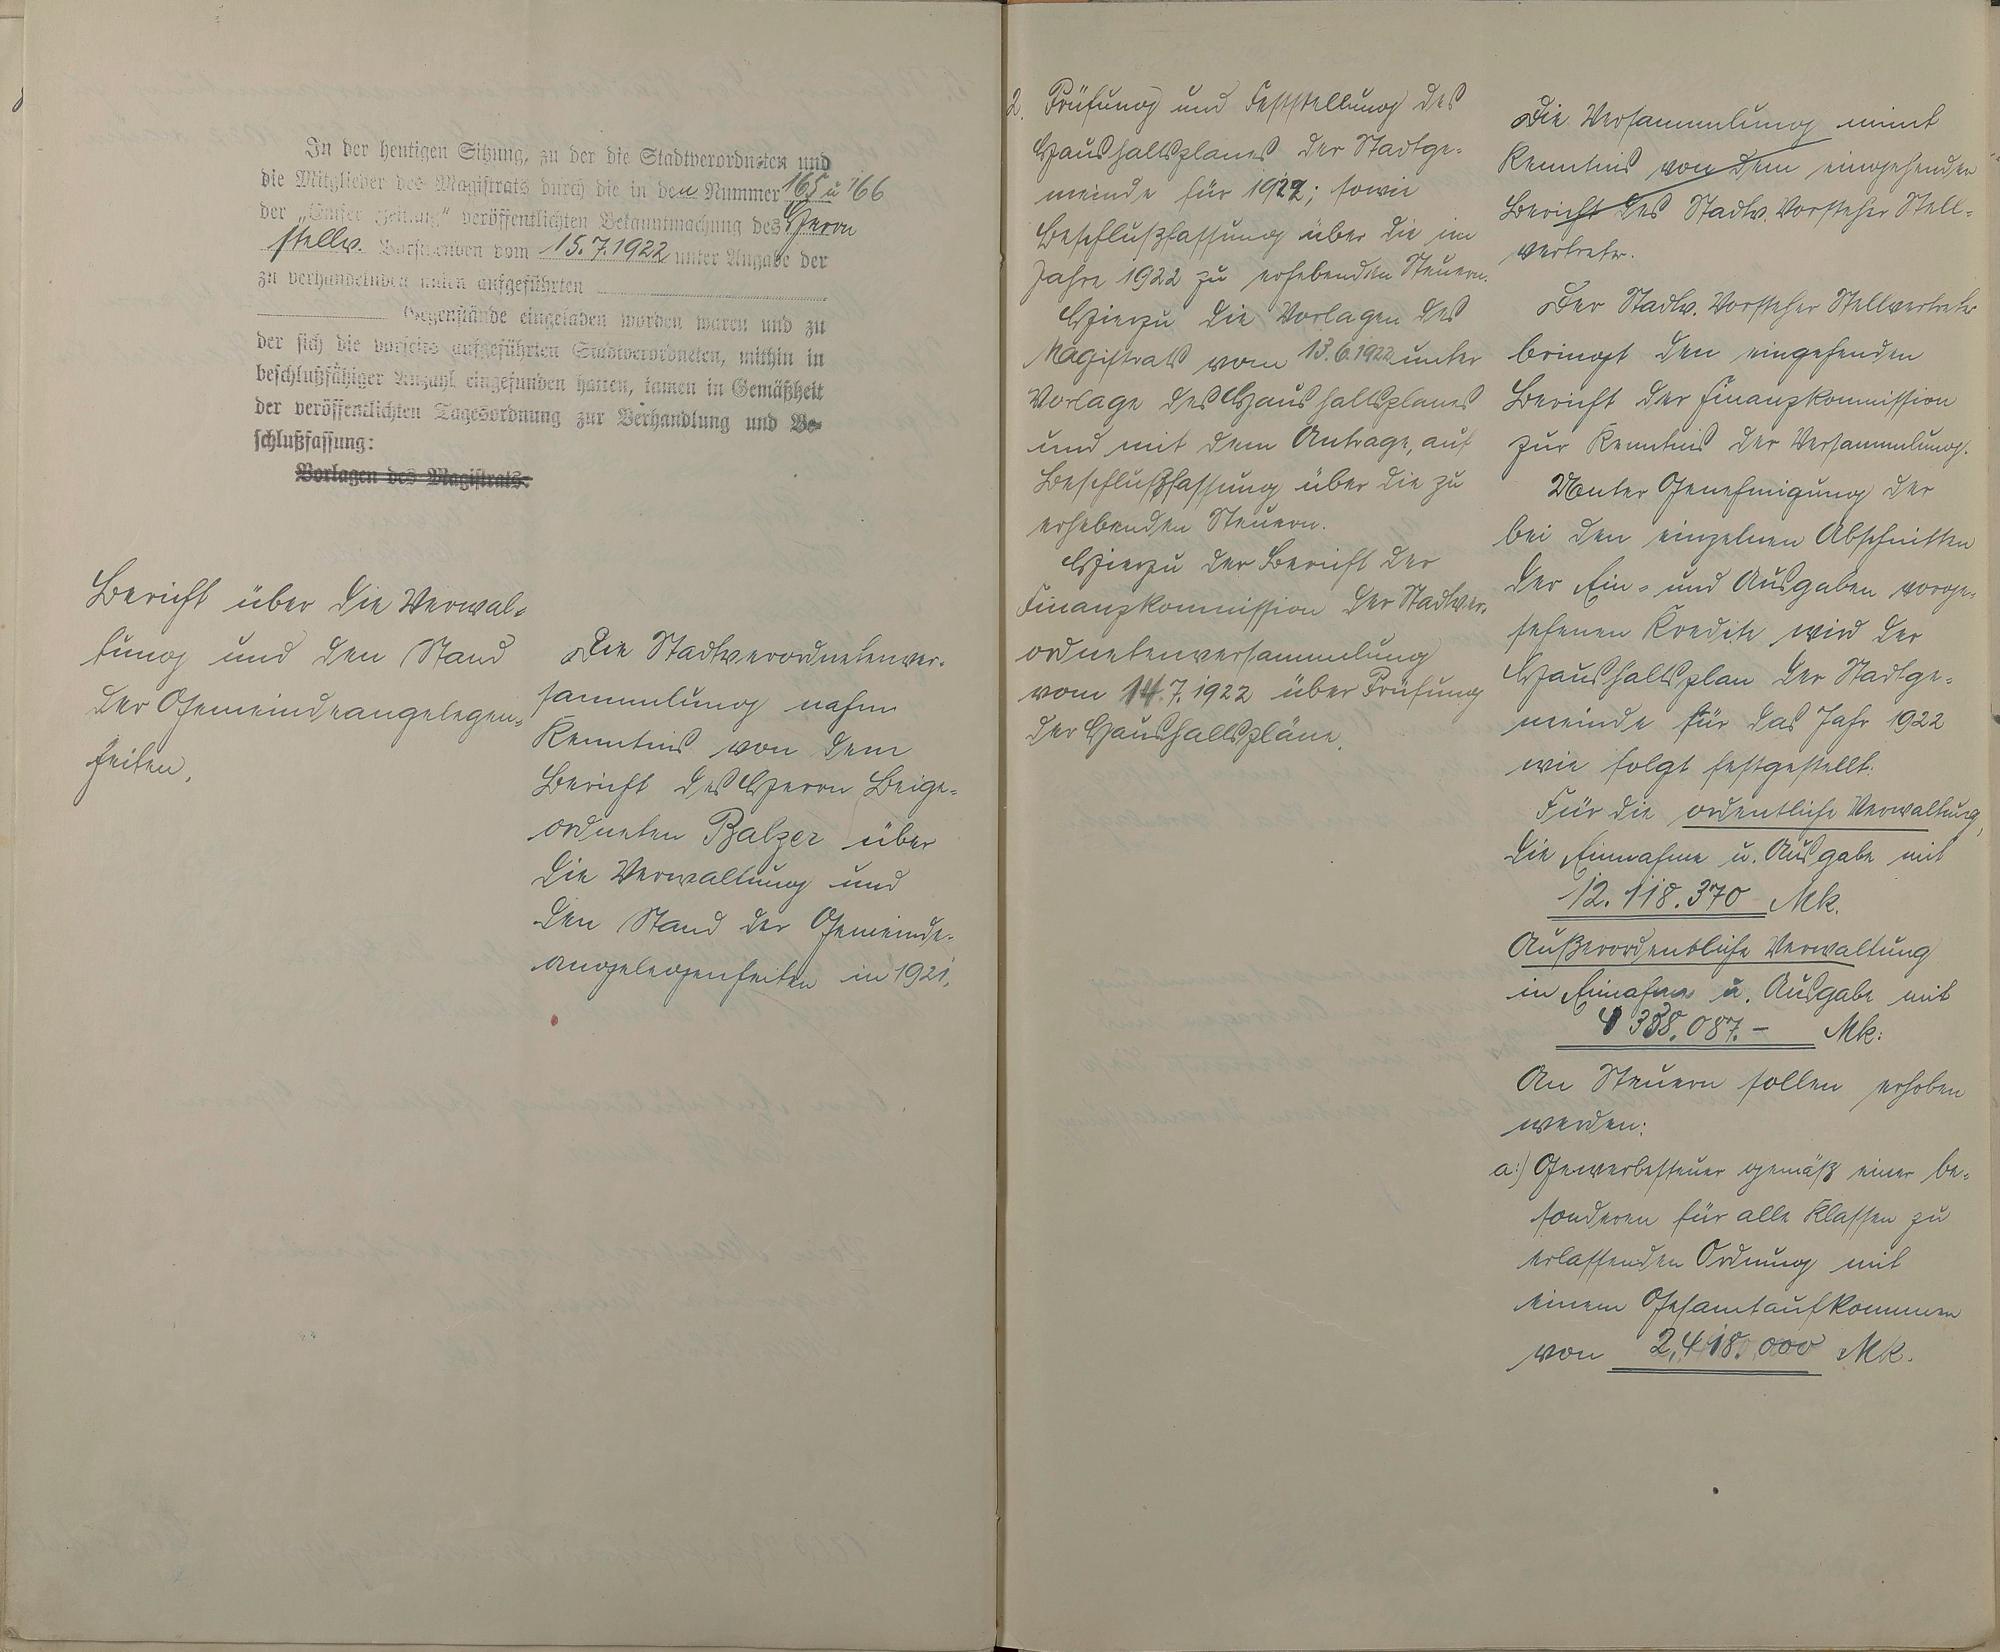 In der heutigen Sitzung, zu der die Stadtverordneten und
die Mitglieder des Magistrats durch die in den Nummer 165 u 166
der „Emser Zeitung“ veröffentlichten Bekanntmachung des Herrn
stellv. Vorsitzenden vom 15.7.1922 unter Angabe der
zu verhandelnden unten aufgeführten
Gegenstände eingeladen worden waren und zu
der sich die vorseits aufgeführten Stadtverordneten, mithin in
beschlußfähiger Anzahl eingefunden hatten, kamen in Gemäßheit
der veröffentlichten Tagesordnung zur Verhandlung und Be-
schlußfassung:
Vorlagen des Magistrats.
Bericht über die Verwal-
tung und den Stand
der Gemeindeangelegen-
heiten.
Die Stadtverordnetenver-
sammlung nahm
Kenntnis von dem
Bericht des Herrn Beige-
ordneten Balzer über
die Verwaltung und
den Stand der Gemeinde-
angelegenheiten in 1921.
2. Prüfung und Feststellung des
Haushaltsplanes der Stadtge-
meinde für 1922; sowie
Beschlußfassung über die im
Jahre 1922 zu erhebenden Steuern.
Hierzu die Vorlagen des
Magistrats vom 13.6.1922 unter
Vorlage des Haushaltsplanes
und mit dem Antrage, auf
Beschlußfassung über die zu
erhebenden Steuern.
Hierzu der Bericht der
Finanzkommission der Stadtver-
ordnetenversammlung
vom 14.7.1922 über Prüfung
der Haushaltspläne.
Die Versammlung nimt
Kenntnis von dem eingehenden
Bericht des Stadtv. Vorsteher Stell-
vertreter.
Der Stadtv. Vorsteher Stellvertreter
bringt den eingehenden
Bericht der Finanzkommission
zur Kenntnis der Versammlung.
Unter Genehmigung der
bei den einzelnen Abschnitten
der Ein- und Ausgaben vorge-
sehenen Kredite wird der
Haushaltsplan der Stadtge-
meinde für das Jahr 1922
wie folgt festgestellt:
Für die ordentliche Verwaltung,
die Einnahme u. Ausgabe mit
12.118.370 Mk.
Außerordentliche Verwaltung
in Einahme u. Ausgabe mit
4 388.087.- Mk:
An Steuern sollen erhoben
werden:
a:) Gewerbesteuer gemäß einer be-
sonderen für alle Klassen zu
erlassenden Ordnung mit
einem Gesamtaufkommen
von 2,418.000 Mk.